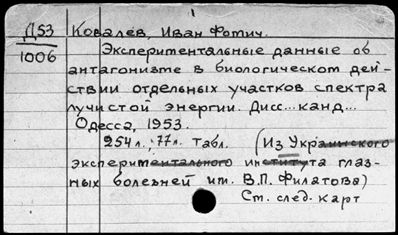 Д53 Ковалёв, Иван Фомич.
1006 Экспериментальные данные об
антагонизме в биологическом дей-
ствии отдельных участков спектра
лучистой энергии. Дисс... канд...
Одесса, 1953.
254 л.; 77 л. табл. (Из Украинского
экспериментального института глаз-
ных болезней им. В.П. Филатова)
См. след. карт